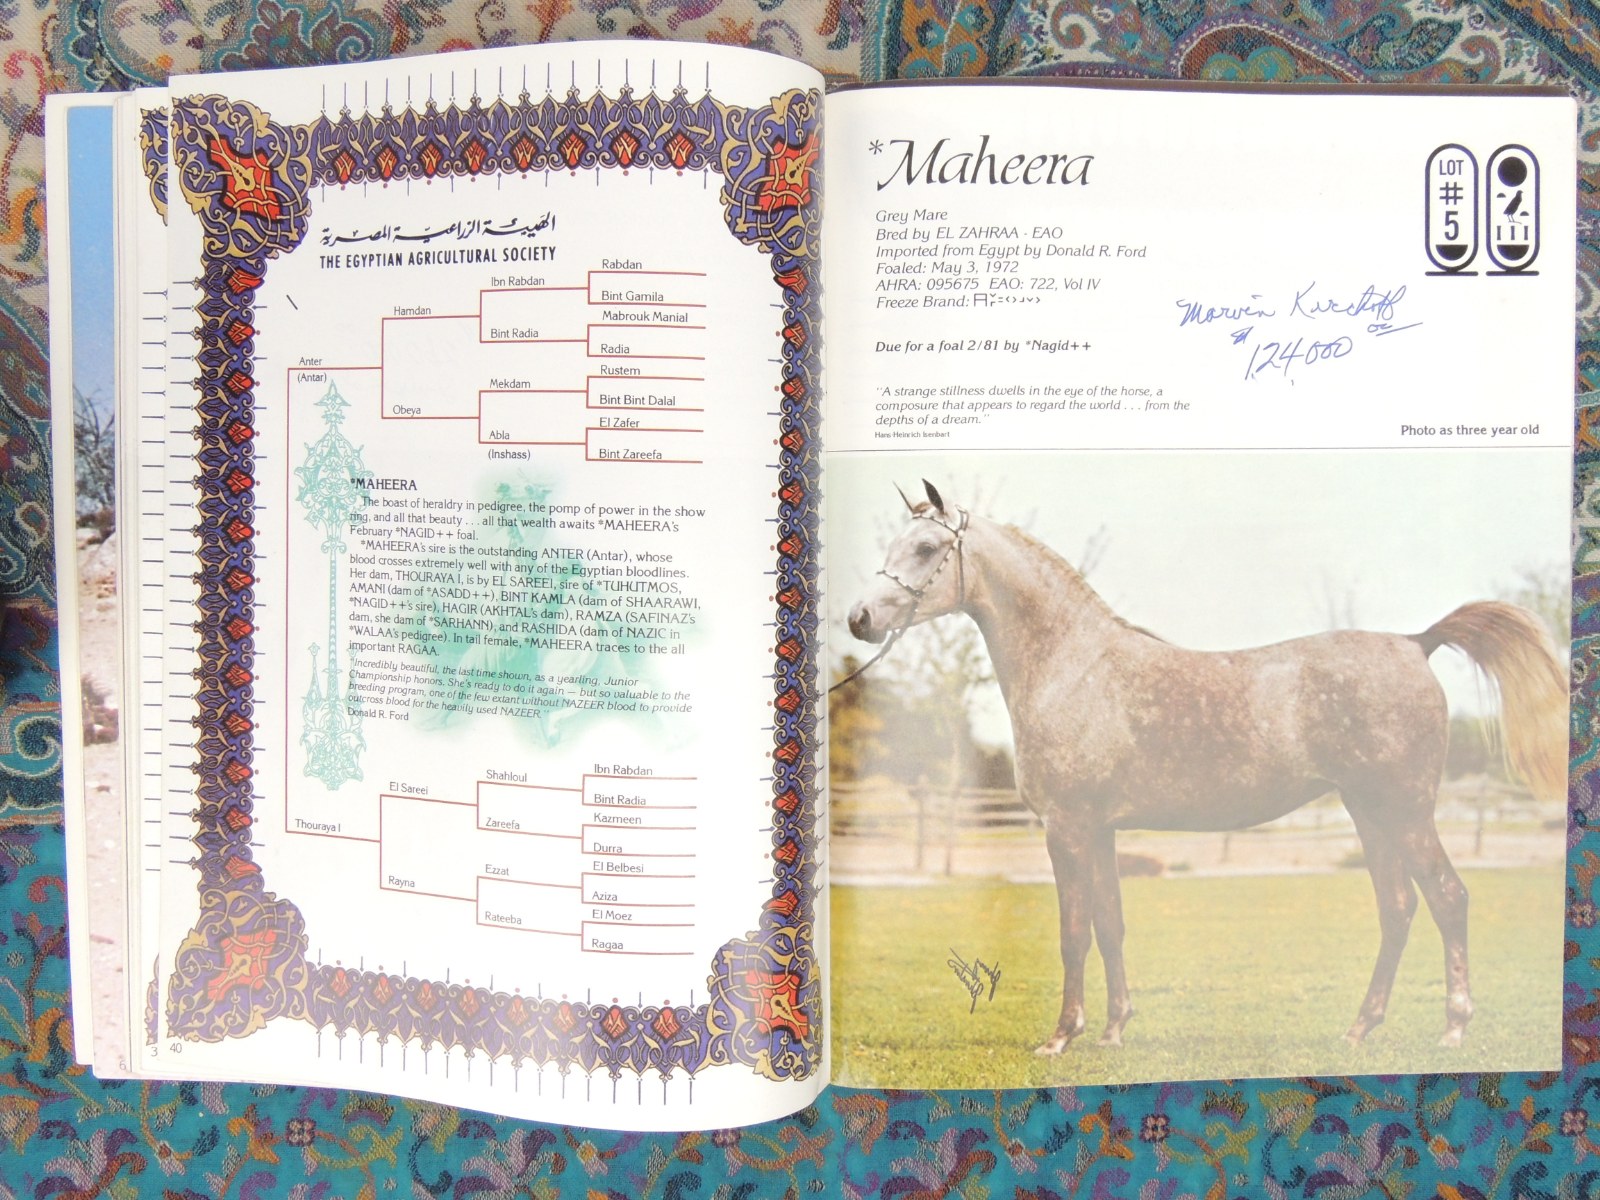 الهيئة الزراعية المصرية
THE EGYPTIAN AGRICULTURAL SOCIETY
Rabdan
Ibn Rabdan
Bint Gamila
Hamdan
Mabrouk Manial
Bint Radia
Radia
Anter
(Antar)
Rustem
Mekdam
Bint Bint Dalal
Obeya
El Zafer
Abla
(Inshass)
Bint Zareefa
*MAHEERA
The boast of heraldry in pedigree, the pomp of power in the show
ring, and all that beauty . . . all that wealth awaits *MAHEERA's
February *NAGID++ foal.
*MAHEERA's sire is the outstanding ANTER (Antar), whose
blood crosses extremely well with any of the Egyptian bloodlines.
Her dam, THOURAYA I, is by EL SAREEI, sire of *TUHUTMOS,
AMANI (dam of *ASADD++), BINT KAMLA (dam of SHAARAWI,
*NAGID++'s sire), HAGIR (AKHTAL's dam), RAMZA (SAFINAZ's
dam, she dam of *SARHANN), and RASHIDA (dam of NAZIC in
*WALAA's pedigree). In tail female, *MAHEERA traces to the all
important RAGAA.
"Incredibly beautiful, the last time shown, as a yearling, Junior
Championship honors. She's ready to do it again — but so valuable to the
breeding program, one of the few extant without NAZEER blood to provide
outcross blood for the heavily used NAZEER."
Donald R. Ford
Ibn Rabdan
Shahloul
Bint Radia
El Sareei
Kazmeen
Zareefa
Durra
Thouraya I
El Belbesi
Ezzat
Aziza
Rayna
El Moez
Rateeba
Ragaa
40
3
6
*Maheera
LOT
#
5
Grey Mare
Bred by EL ZAHRAA - EAO
Imported from Egypt by Donald R. Ford
Foaled: May 3, 1972
AHRA: 095675 EAO: 722, Vol IV
Freeze Brand:
Marvin Kirchoff
$124,000
Due for a foal 2/81 by *Nagid++
"A strange stillness dwells in the eye of the horse, a
composure that appears to regard the world . . . from the
depths of a dream."
Hans-Heinrich Isenbart
Photo as three year old